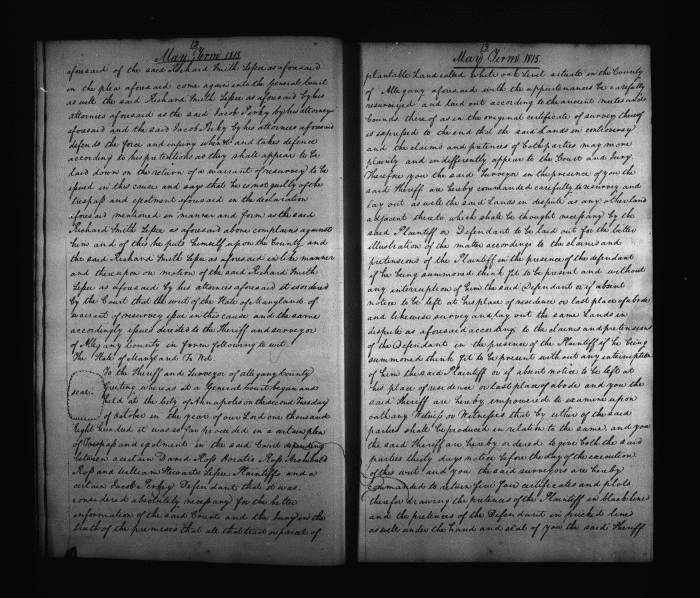 13
May Term 1815
aforesaid of the said Richard Smith Lessee as aforesaid
in the plea aforesaid come again into the General Court
as well the said Richard Smith Lessee as aforesaid by his
attornies aforesaid as the said Jacob Perkey by his attornies
aforesaid and the said Jacob Perkey by his attornies aforesaid
defends the force and injury when &c and takes defence
according to his pretentions as they shall appear to be
laid down on the return of a warrant of resurvey to be
issued in this cause and says that he is not guilty of the
trespass and ejectment aforesaid in the declaration
aforesaid mentioned in manner and form as the said
Richard Smith Lessee as aforesaid above complains against
him and of this he puts himself upon the County, and
the said Richard Smith Lessee as aforesaid in like manner
and thereupon on motion of the said Richard Smith
Lessee as aforesaid by his attornies aforesaid it is ordered
by the Court that the writ of the State of Maryland of
warrant of resurvey issue in this cause and the same
accordingly issues directed to the Sheriff and surveyor
of Allegany County in form following to wit.
The State of Maryland To Wit.
To the Sheriff and Surveyor of allegany County
seal.
Greeting whereas at a General Court began and
held at the City of Annapolis on the second Tuesday
of october in the year of our Lord one thousand
Eight hundred it was so far proceeded in a certain plea
of Trespass and ejectment in the said Court depending
between a certain David Ross Horatio Ross Archibald
Ross and William Stewarts Lessee Plaintiffs and a
certain Jacob Perkey Defendant that it was
considered absolutely necessary for the better
information of the said Court and the Jury in the
truth of the premises that all that tract or parcel of
13
May Term 1815.
plantable Land called White oak Level situate in the County
of Allegany aforesaid with the appurtenances be carefully
resurveyed and laid out according to the ancient metes and
bounds thereof as in the original certificate of survey thereof
is expressed to the end that the said Lands in controversy
and the claims and pretences of both parties may more
plainly and indifferently appear to the Court and Jury.
Therefore you the said Surveyor in the presence of you the
said Sheriff are hereby commanded carefully to resurvey and
lay out as well the said Lands in dispute as any other land
adjacent thereto which shall be thought necessary by the
said Plaintiff or Defendant to be laid out for the better
illustration of the matter according to the claims and
pretensions of the Plaintiff in the presence of the defendant
if he being summoned think fit to be present and without
any interruption of him the said Defendant or if absent
notice to be left at his place of residence or last place of abode
and likewise survey and lay out the same Lands in
dispute as aforesaid according to the claims and pretensions
of the Defendant in the presence of the Plaintiff if he being
summoned think fit to be present without any interruption
of him the said Plaintiff or if absent notice to be left at
his place of residence or last place of abode and you the
said Sheriff are hereby empowered to examine upon
oath any Witness or Witnesses that by either of the said
parties shall be produced in relation to the same and you
the said Sheriff are hereby ordered to give both the said
parties thirty days notice before the day of the execution
of this writ and you the said surveyors are hereby
commanded to return five fair certificates and plots
thereof drawing the pretences of the Plaintiff in black lines
and the pretences of the Defendant in pricked lines
as well under the hand and seal of you the said Sheriff